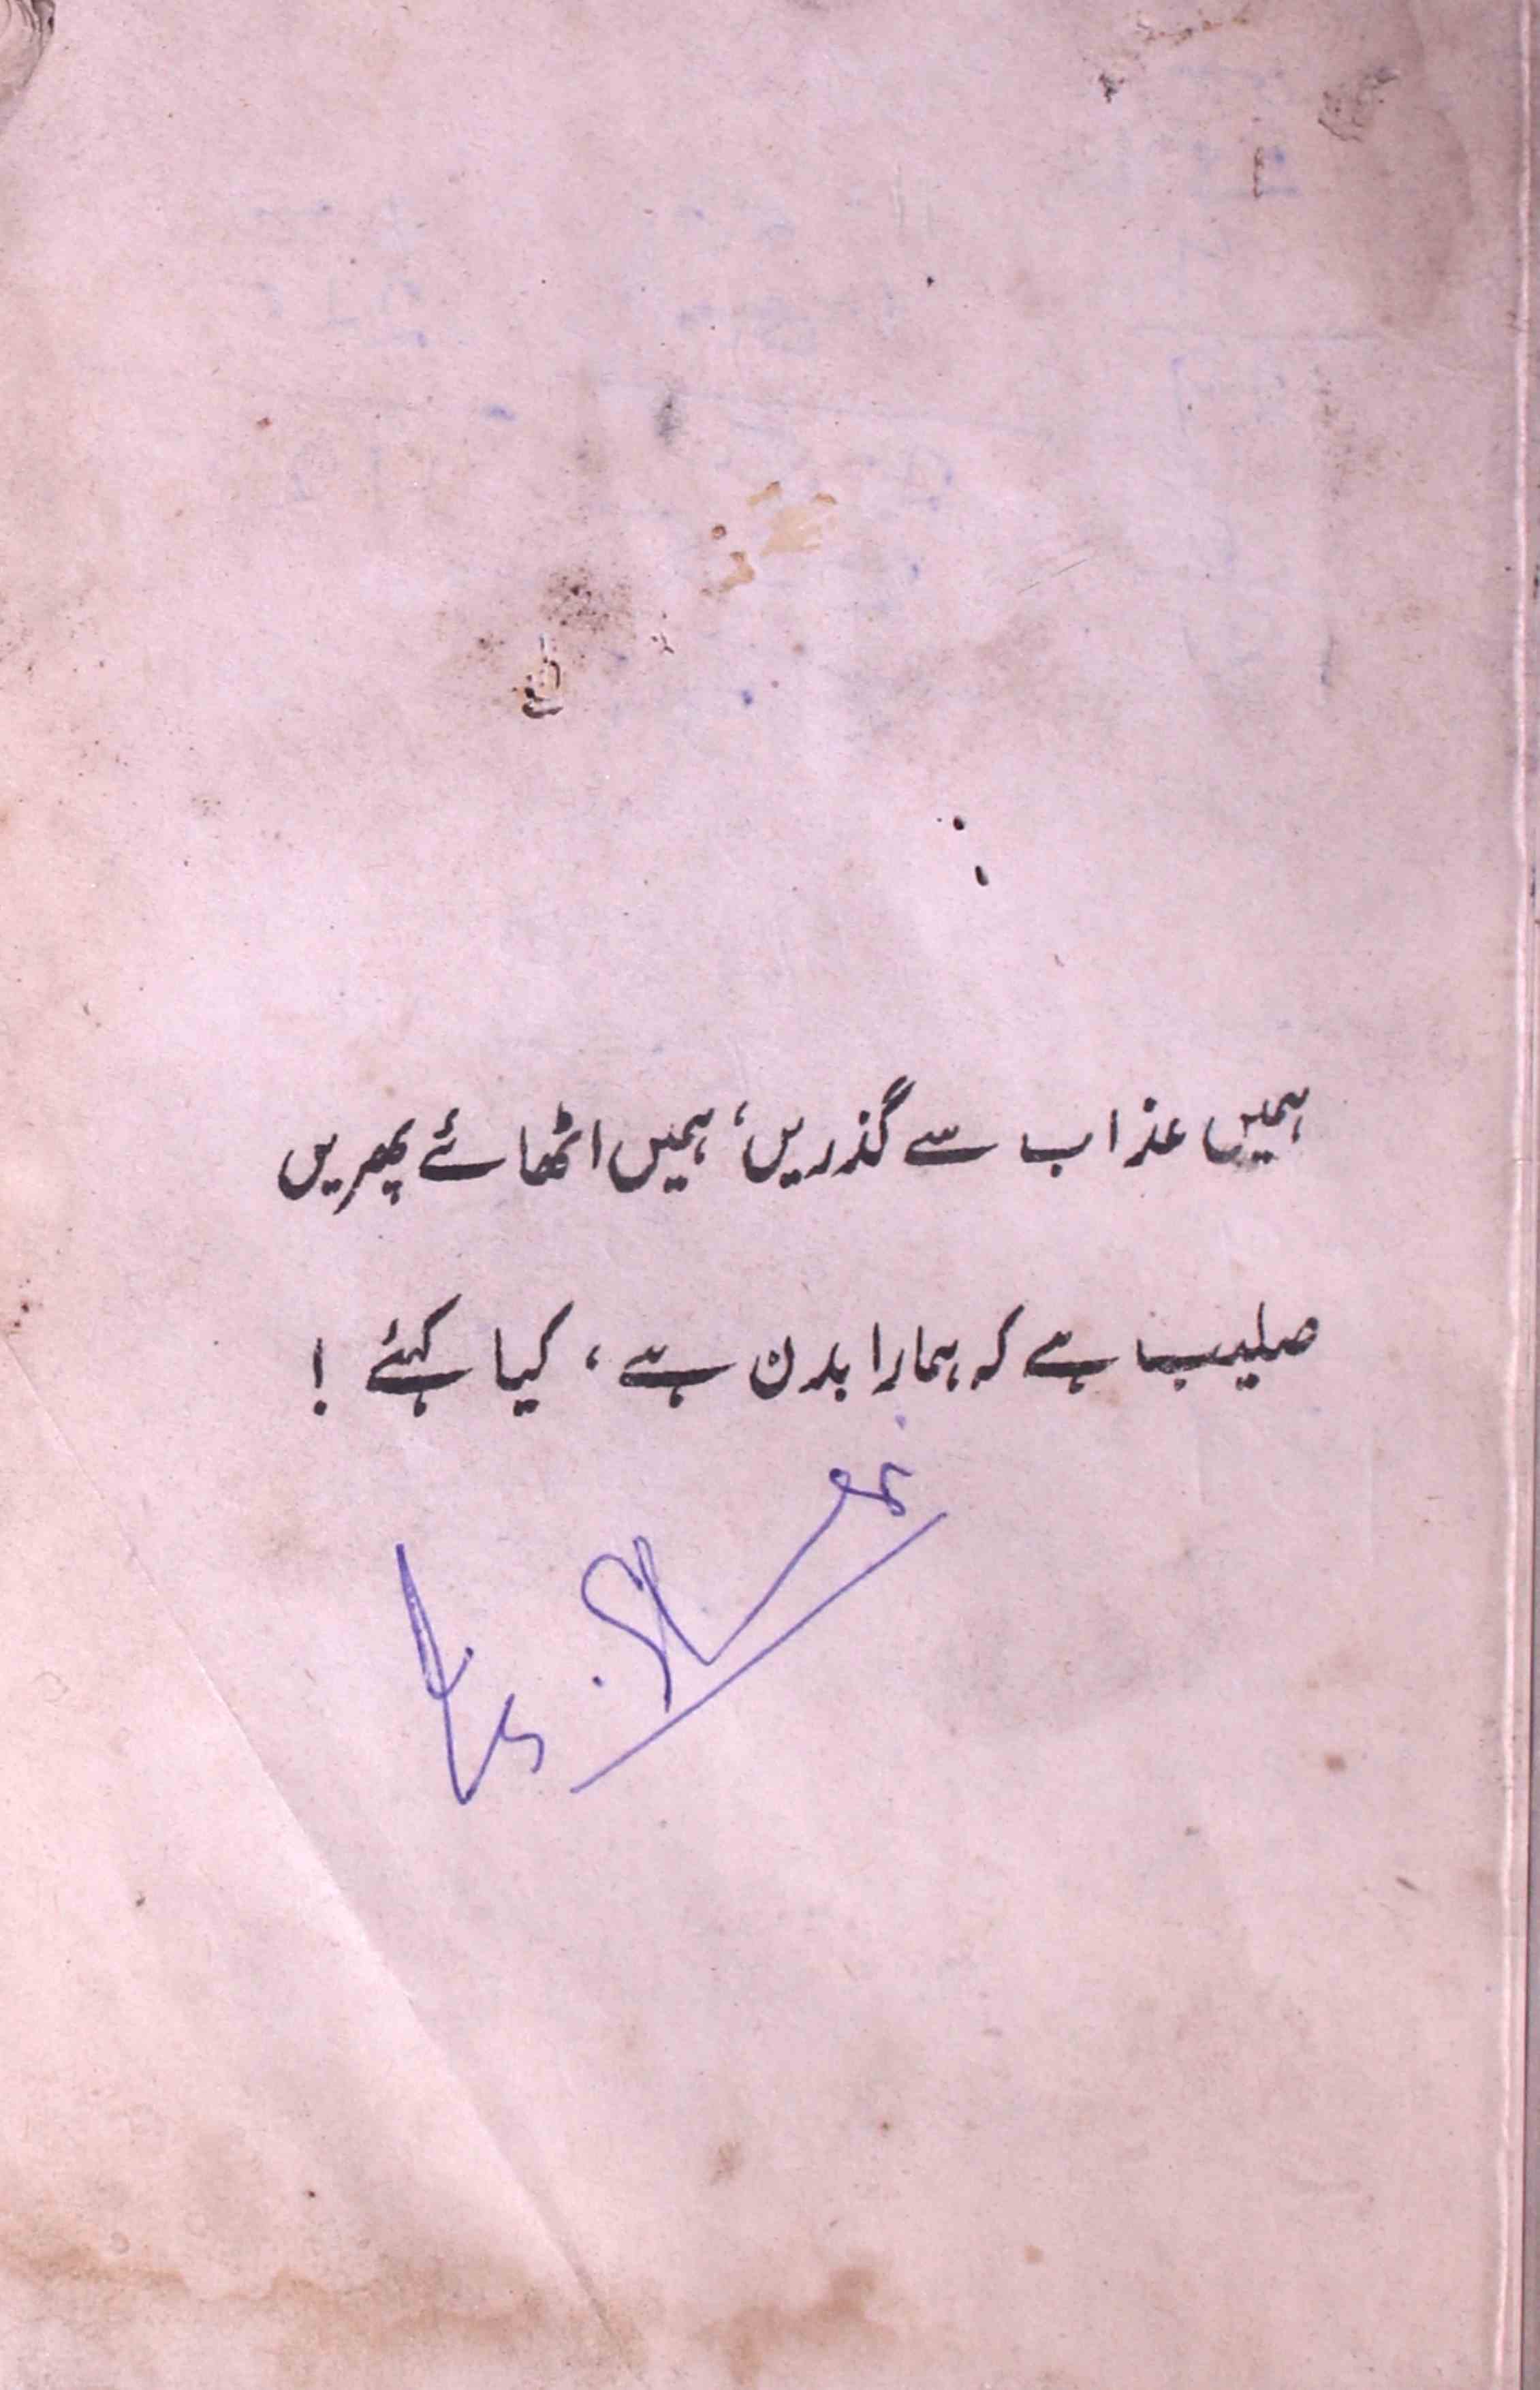 ہمیں عذاب سے گذریں، ہمیں اٹھائے پھریں
صلیب ہے کہ ہمارا بدن ہے، کیا کہئے !